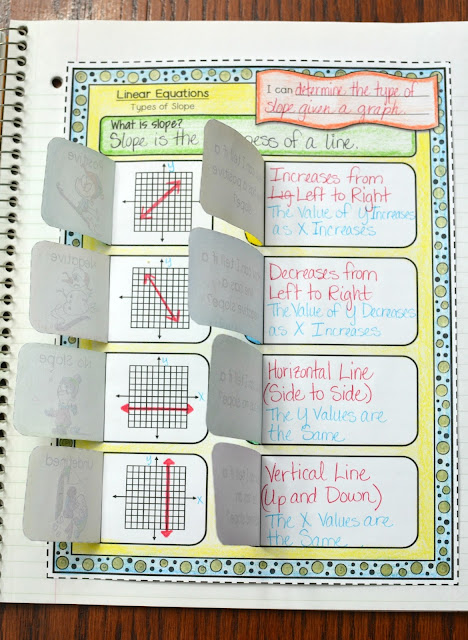 Linear Equations
Types of Slope
I can determine the type of
slope given a graph.
What is slope?
Slope is the ness of a line.
Positive
y
Increases from
Lig Left to Right
The Value of Y Increases
as X Increases
Negative
y
Decreases from
Left to Right
The Value of Y Decreases
as X Increases
No Slope
y
x
Horizontal Line
(Side to Side)
The Y Values are
the Same
undefined
y
x
Vertical Line
(Up and Down)
The X Values are
the Same